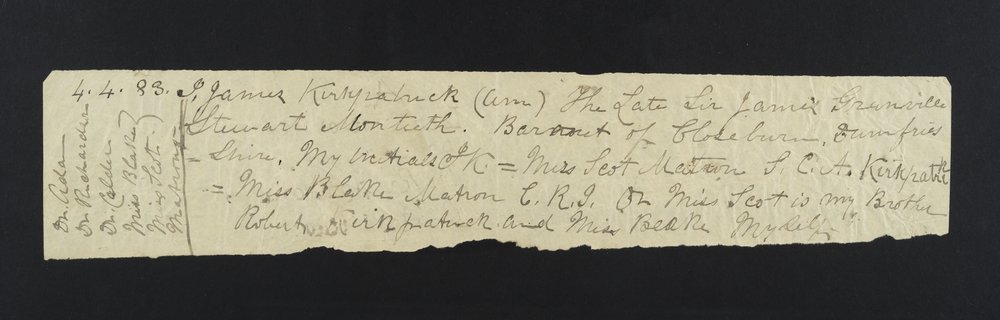 4.4.83. I, James Kirkpatrick (Ann) The Late Sir James Granville
Stewart Monteith. Baronet of Closeburn, Dumfries
= Shire, My initials J K = Miss Scot Matron S. C. A. Kirkpatrick
= Miss Blake Matron C. R. I. Or Miss Scot is my Brother
Robert Kirkpatrick and Miss Blake Myself
Dr Ada
Dr Richardson
Dr Calder
Miss Blake)
Miss Scot.)
Matrons